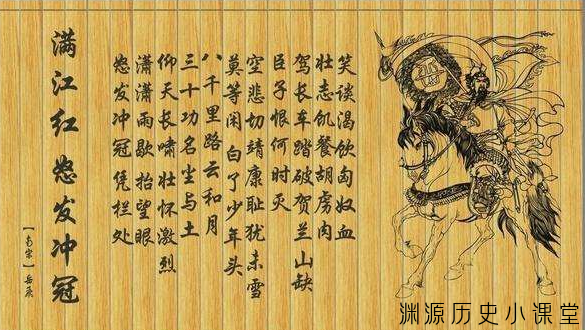 满江红 怒发冲冠
【南宋】岳飞
怒发冲冠凭栏处
潇潇雨歇抬望眼
仰天长啸壮怀激烈
三十功名尘与土
八千里路云和月
莫等闲白了少年头
空悲切靖康耻犹未雪
臣子恨何时灭
驾长车踏破贺兰山缺
壮志饥餐胡虏肉
笑谈渴饮匈奴血
渊源历史小课堂